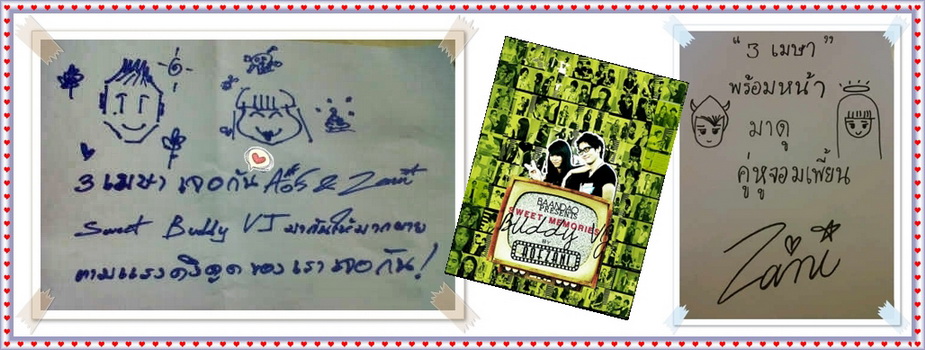 3 เมษา เจอกัน Aoฮ์ & Zani
Sweet Buddy VJ มากันให้มากมาย
ตามแรงดึงดูด ของเรา เจอกัน!
BAANDAO
PRESENTS
SWEET MEMORIES
Buddy VJ
BY
"3 เมษา"
พร้อมหน้า
มาดู
คู่หูจอมเพี้ยน
Zani